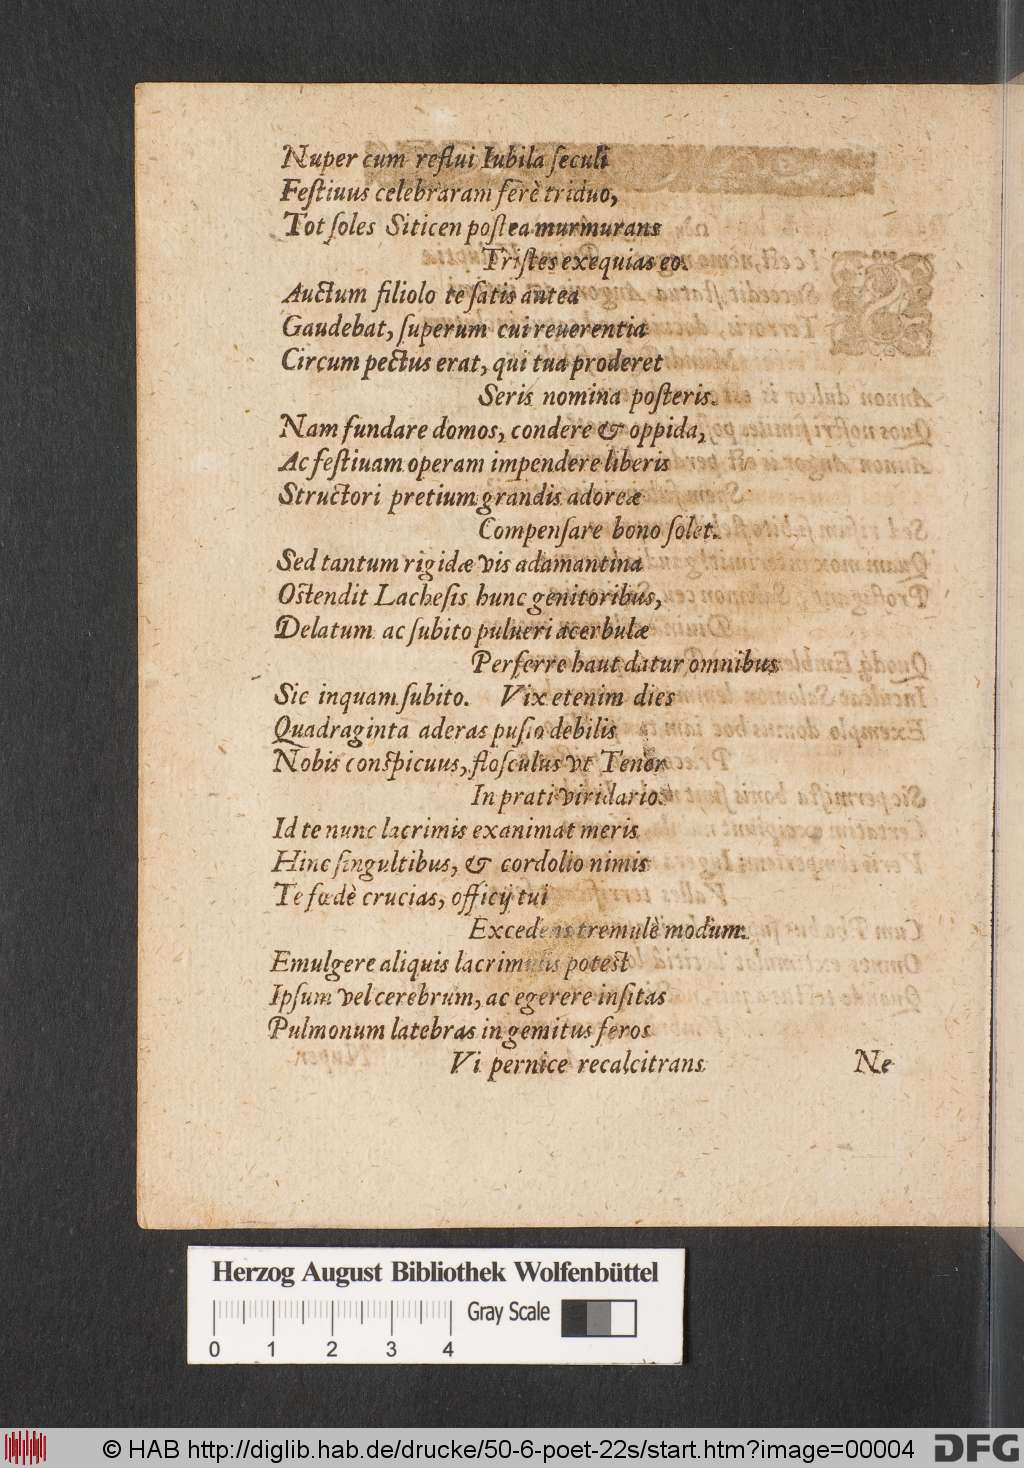 Nuper cum reflui Iubila ſeculi
Feſtiuus celebraram ferè triduo,
Tot ſoles Siticen poſtea murmurans
Triſtes exequias eo.
Auctum filiolo te ſatis antea
Gaudebat, ſuperum cui reuerentia
Circum pectus erat, qui tua proderet
Seris nomina poſteris.
Nam fundare domos, condere & oppida,
Ac feſtiuam operam impendere liberis
Structori pretium grandis adoreæ
Compenſare bono ſolet.
Sed tantum rigidæ vis adamantina
Oſtendit Lacheſis hunc genitoribus,
Delatum ac ſubito pulueri acerbulæ
Perferre haut datur omnibus.
Sic inquam ſubito. Vix etenim dies
Quadraginta aderas puſio debilis
Nobis conſpicuus, floſculus vt Tener
In prati viridario.
Id te nunc lacrimis exanimat meris
Hinc ſingultibus, & cordolio nimis
Te fœdè crucias, officij tui
Excedens tremulè modum.
Emulgere aliquis lacrimulis poteſt
Ipſum vel cerebrum, ac egerere inſitas
Pulmonum latebras in gemitus feros
Vi pernice recalcitrans.
Ne
Herzog August Bibliothek Wolfenbüttel
Gray Scale
0 1 2 3 4
© HAB http://diglib.hab.de/drucke/50-6-poet-22s/start.htm?image=00004
DFG